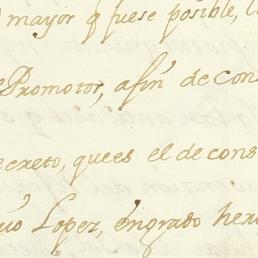 mayor q fuese posible, l
Promotor, afin de Con
creto, quees el de cons
Lopez, engrado her